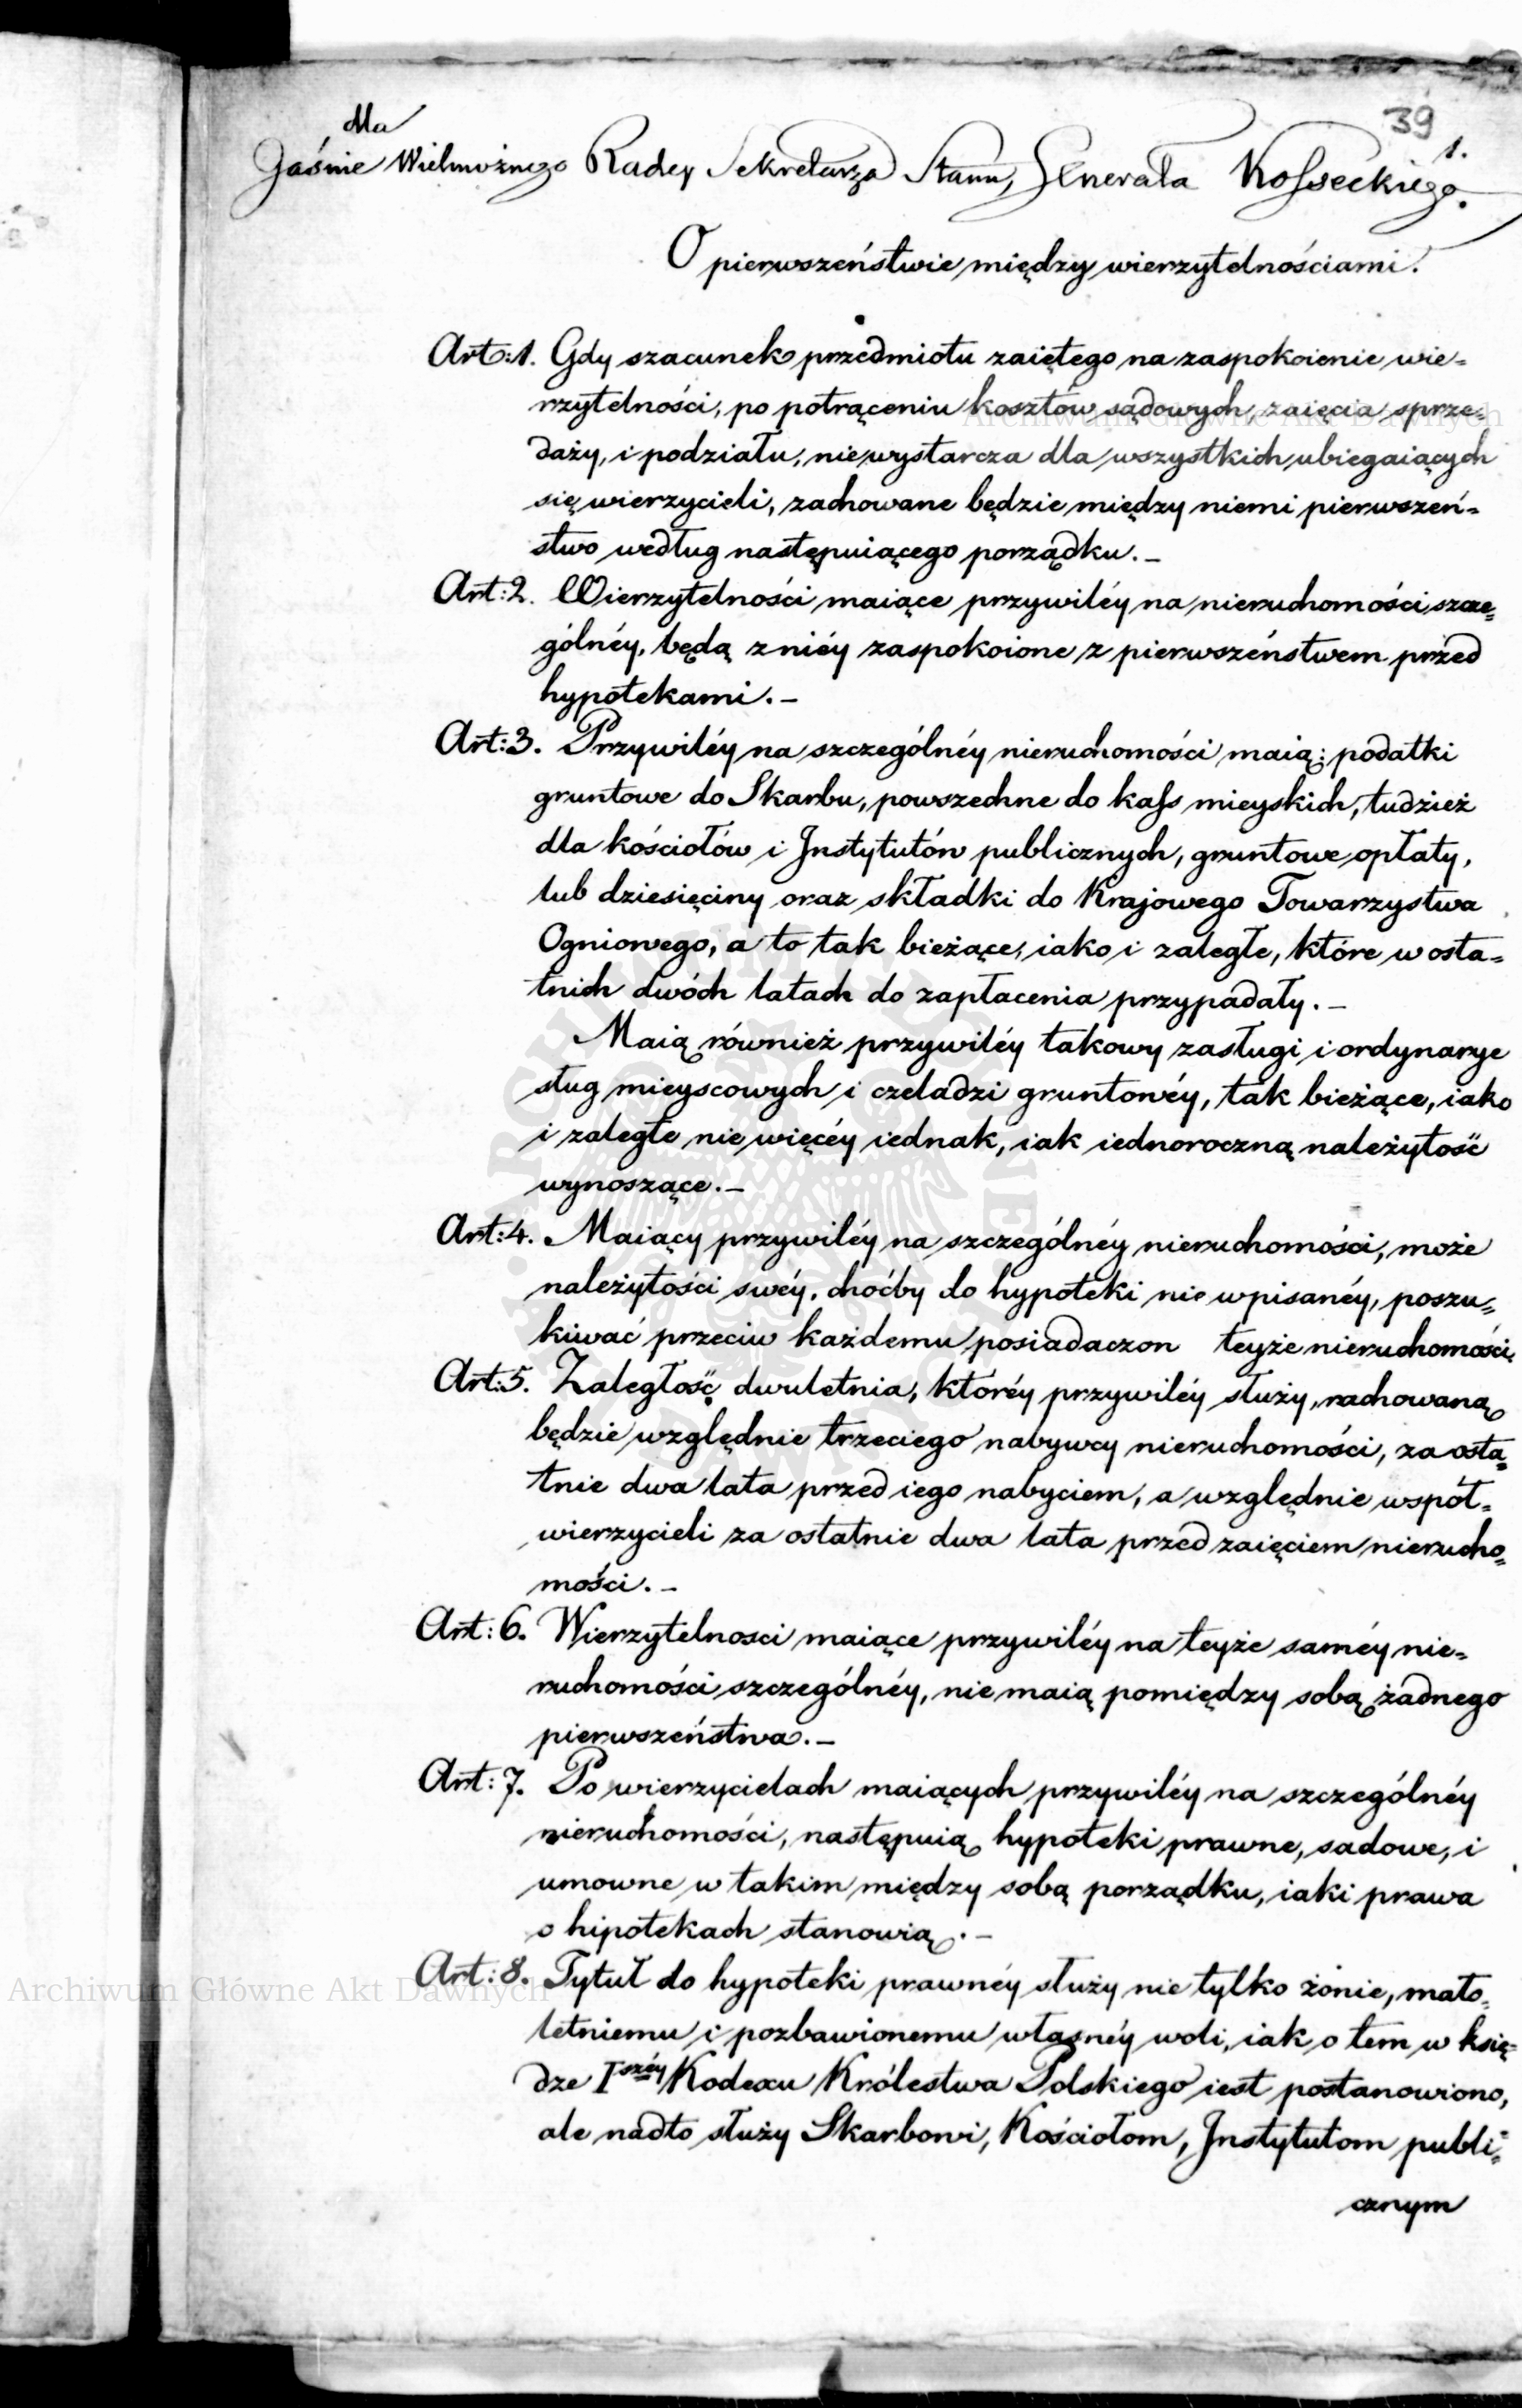 39
1.
dla
Jaśnie Wielmożnego Radcy Sekretarza Stanu, Generała Kosseckiego.
O pierwszeństwie między wierzytelnościami.
Art:1. Gdy szacunek przedmiotu zaiętego na zaspokoienie wie=
rzytelności, po potrąceniu kosztów sądowych, zaięcia, sprze=
daży, i podziału, niewystarcza dla wszystkich ubiegaiących
się wierzycieli, zachowane będzie między niemi pierwszeń=
stwo według następuiącego porządku.–
Art:2. Wierzytelności maiące przywiléy na nieruchomości szcze=
gólnéy, będą z niéy zaspokoione z pierwszeństwem przed
hypotekami.–
Art:3. Przywiléy na szczególnéy nieruchomości maią: podatki
gruntowe do Skarbu, powszechne do kass mieyskich, tudzież
dla kościołów i Jnstytutów publicznych, gruntowe opłaty,
lub dziesięciny oraz składki do Krajowego Towarzystwa
Ogniowego, a to tak bieżące, iako i zaległe, które w osta=
tnich dwóch latach do zapłacenia przypadały.–
Maią również przywiléy takowy zasługi i ordynarye
sług mieyscowych i czeladzi gruntowéy, tak bieżące, iako
i zaległe nie więcéy iednak, iak iednoroczną należytość
wynoszące.–
Art:4. Maiący przywiléy na szczególnéy nieruchomości, może
należytości swéy, choćby do hypoteki nie wpisanéy, poszu=
kiwać przeciw każdemu posiadaczon teyże nieruchomości.
Art:5. Zaległość dwuletnia, któréy przywiléy służy, rachowaną
będzie względnie trzeciego nabywcy nieruchomości, za osta=
tnie dwa lata przed iego nabyciem, a względnie współ=
wierzycieli za ostatnie dwa lata przed zaięciem nierucho=
mości.–
Art:6. Wierzytelnosci maiące przywiléy na teyże saméy nie=
ruchomości szczególnéy, nie maią pomiędzy sobą żadnego
pierwszeństwa.–
Art:7. Po wierzycielach maiących przywiléy na szczególnéy
nieruchomości, następuią hypoteki prawne, sadowe, i
umowne w takim między sobą porządku, iaki prawa
o hipotekach stanowią.–
Art:8. Tytuł do hypoteki prawnéy służy nie tylko żonie, mało=
letniemu i pozbawionemu własnéy woli, iak o tem w księ=
dze Iszéy Kodexu Królestwa Polskiego iest postanowiono,
ale nadto służy Skarbowi, Kościołom, Jnstytutom publi=
cznym
Archiwum Główne Akt Dawnych
Archiwum Główne Akt Dawnych